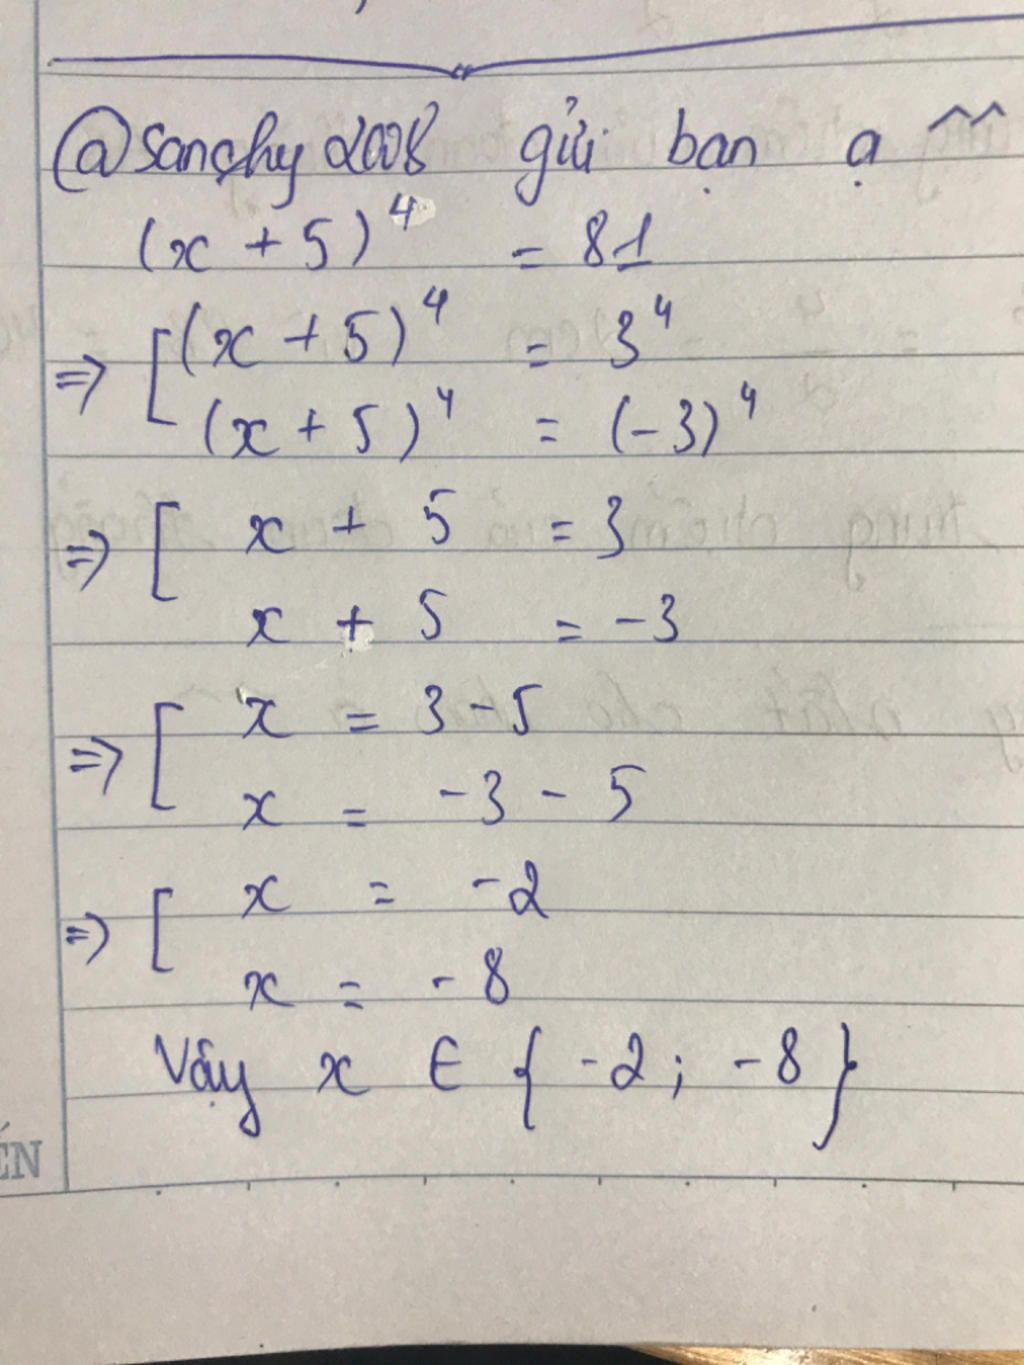 @sanchy2008 gửi bạn ạ ^^
(x + 5)⁴ = 81
⇒ [ (x + 5)⁴ = 3⁴
(x + 5)⁴ = (-3)⁴
⇒ [ x + 5 = 3
x + 5 = -3
⇒ [ x = 3 - 5
x = -3 - 5
⇒ [ x = -2
x = -8
Vậy x ∈ { -2 ; -8 }
ẾN